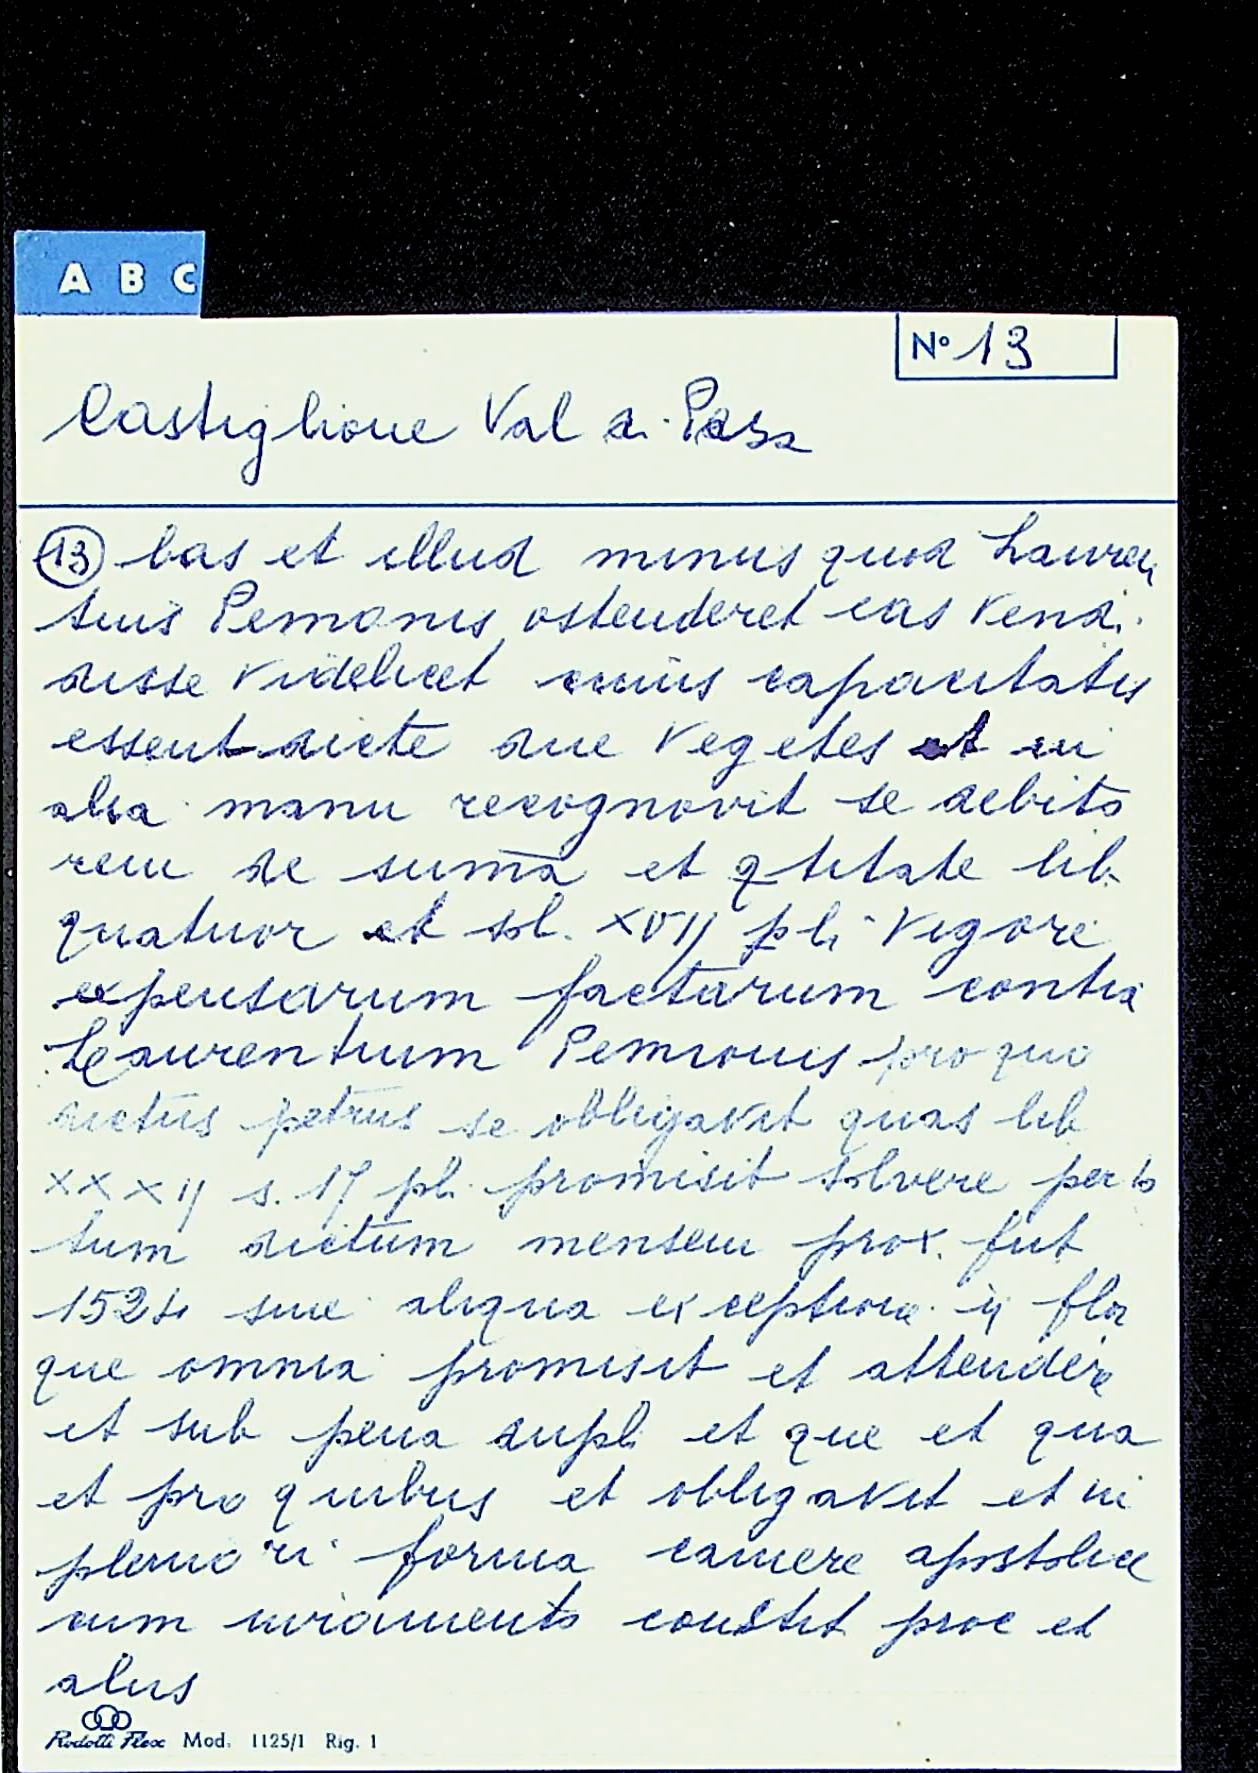 A B C
N° 13
Castiglione Val di Pesa
(13) bas et illud minus quod Lauren
tius Pemonis ostenderet eas vendi
disse videlicet cuius capacitatis
essent dicte due vegetes et in
alia manu recognovit se debito
rem de suma et qtitate lib.
quatuor et sol. XVIJ pli vigore
expensarum factarum contra
Laurentium Pemionis pro quo
dictus petrus se obligavit quas lib
XXXIJ s. 17 pli promisit solvere per to
tum dictum mensem prox. fut
1524 sine aliqua exceptione ij flor
que omnia promisit et attendere
et sub pena dupli et que et qua
et pro quibus et obligavit et in
pleniori forma camere apostolice
cum iuramento constit proc et
alius
Rodolfi Flex Mod. 1125/1 Rig. 1